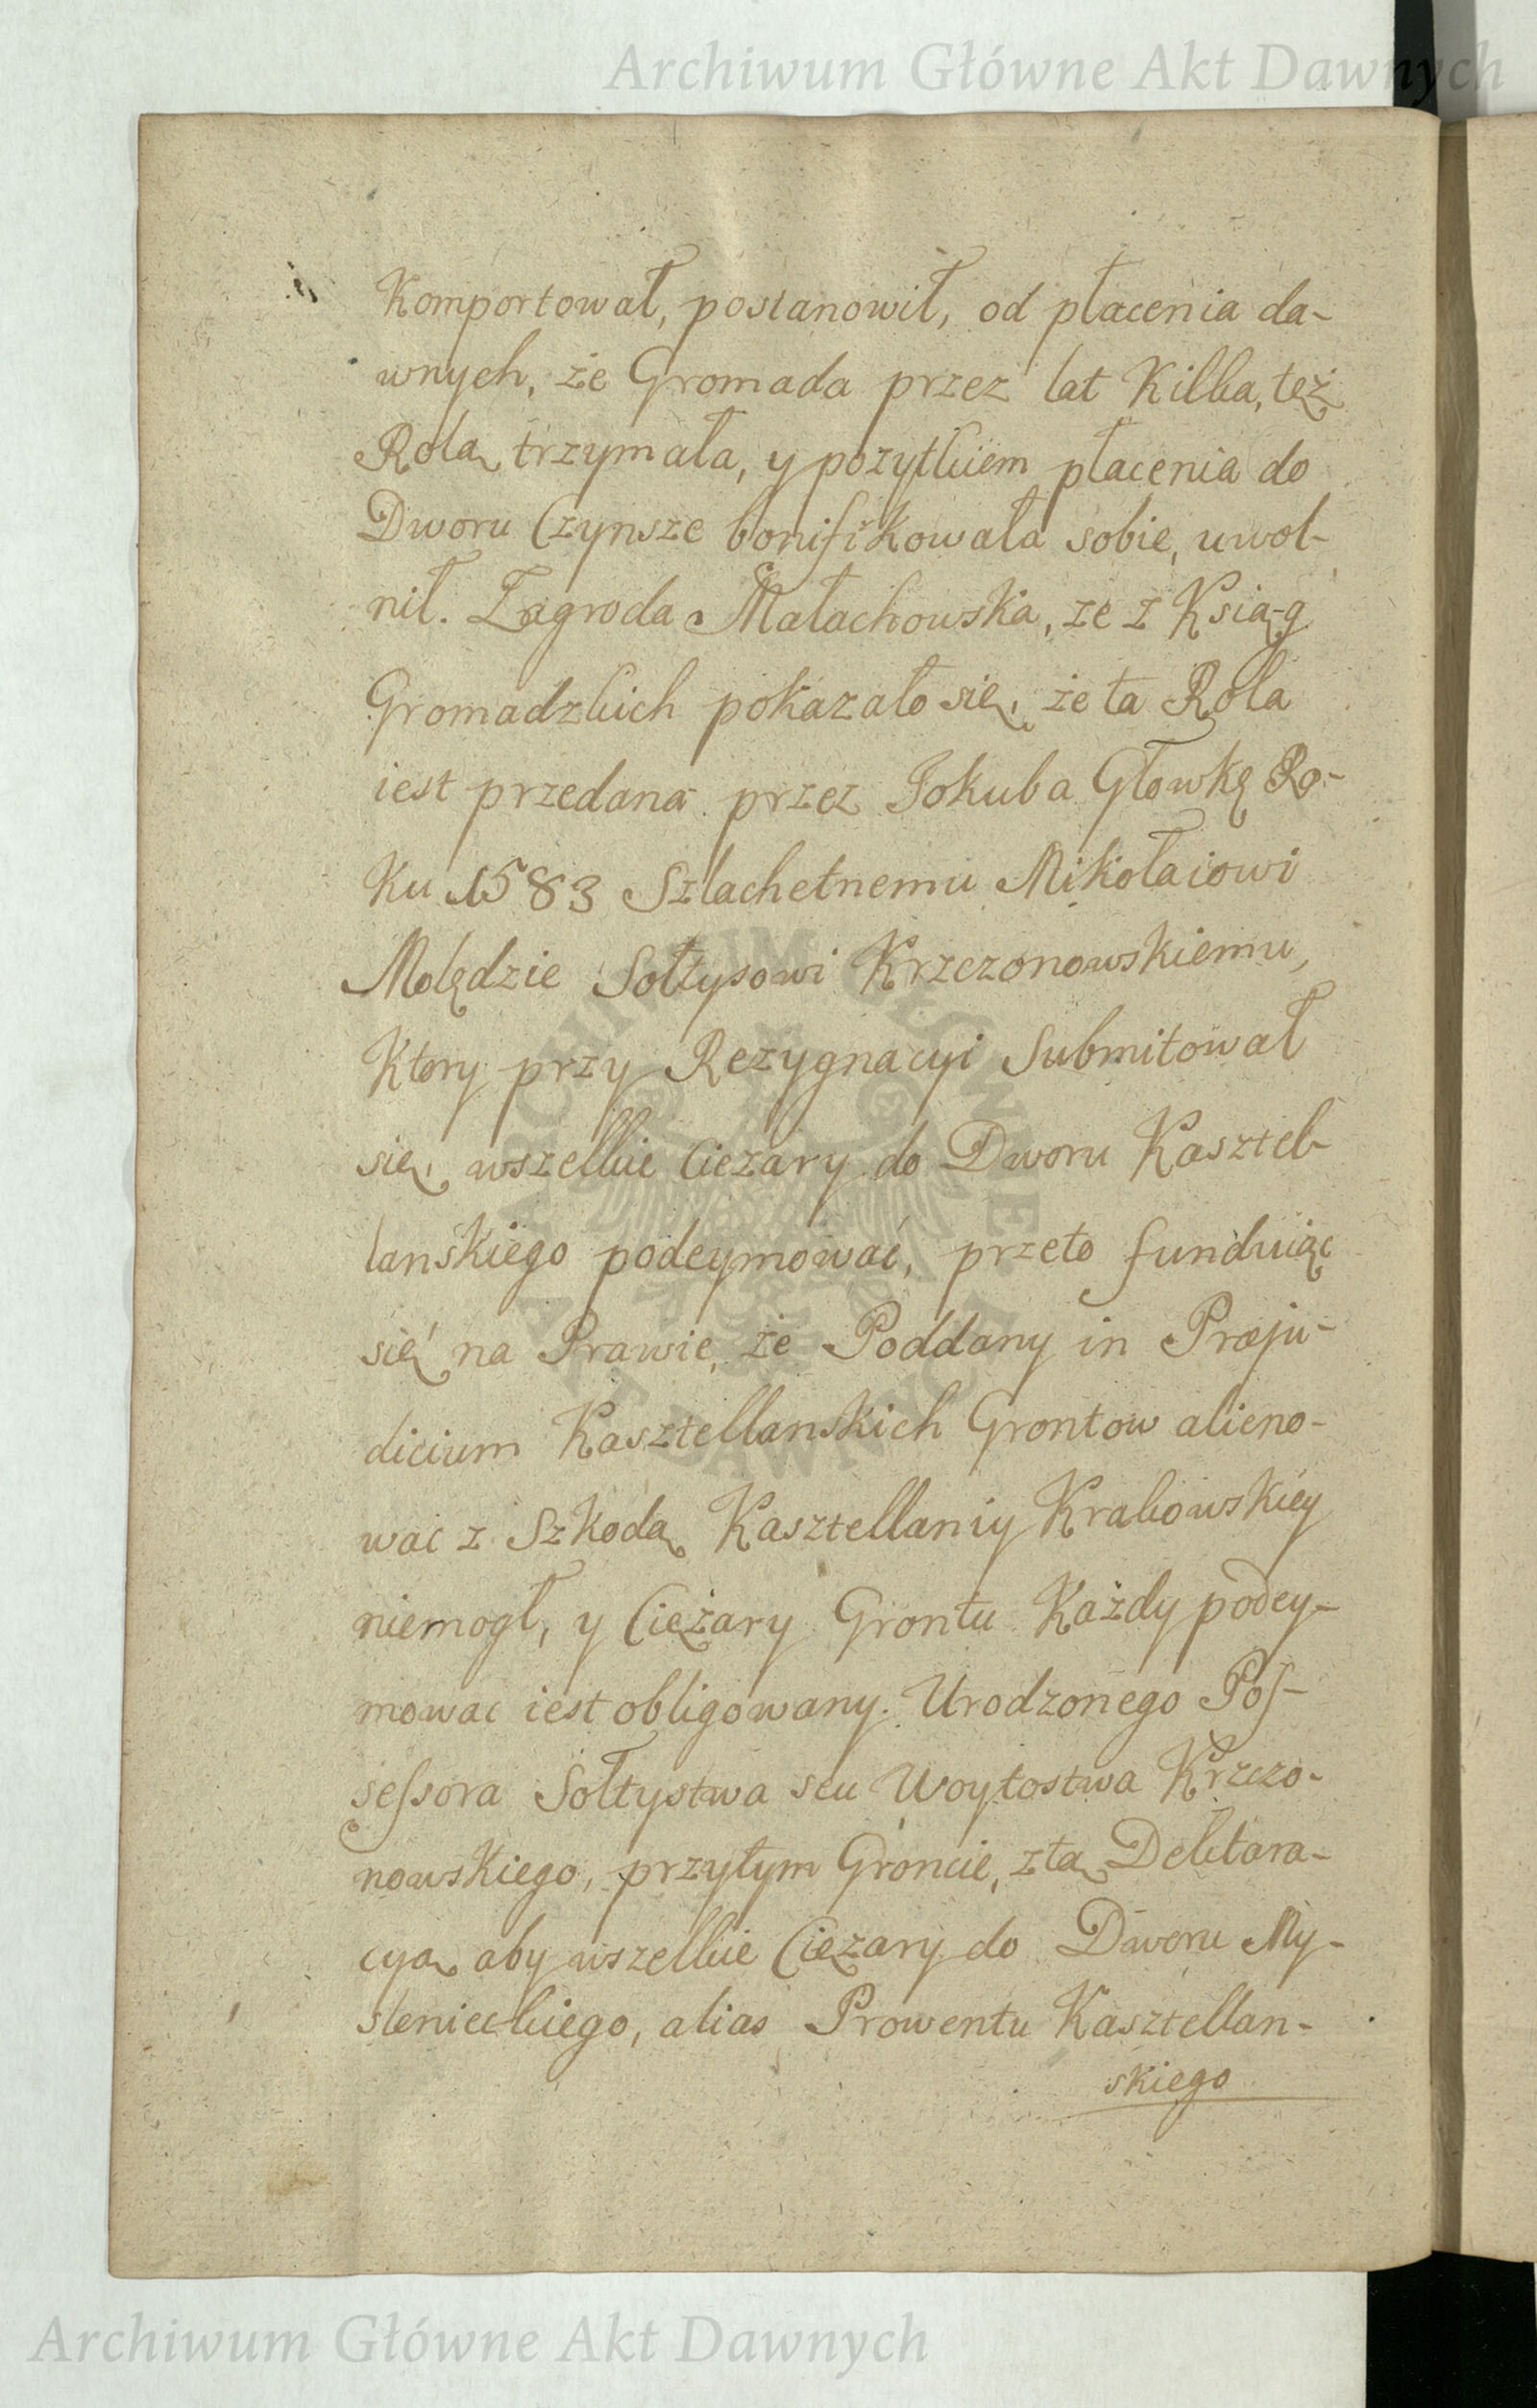 Archiwum Główne Akt Dawnych
Komportował, postanowił, od płacenia da-
wnych, że Gromada przez lat Kilka, też
Rolą trzymała, y pozytkiem płacenia do
Dworu Czynsze bonifikowała sobie, uwol-
nił. Zagroda Małachowska, ze z Ksiąg
Gromadzkich pokazało się, że ta Rola
iest przedana przez Jokuba Głowkę Ro-
Ku 1583 Szlachetnemu Mikołaiowi
Molędzie Sołtysowi Krzczonowskiemu,
Ktory przy Rezygnacyi Submitował
się, wszelkie Ciezary do Dworu Kasztel-
lanskiego podeymować, przeto funduiąc
się na Prawie, że Poddany in Præju-
dicium Kasztellanskich Grontow alieno-
wac z Szkodą Kasztellaniy Krakowskiey
niemogł, y Ciężary Grontu Każdy podey-
mowac iest obligowany. Urodzonego Pos-
sessora Sołtystwa seu Woytostwa Krzczo-
nowskiego, przytym Groncie, z tą Deklara-
cyą aby wszelkie Ciezary do Dworu My-
slenieckiego, alias Prowentu Kasztellan-
skiego
ARCHIWUM GŁÓWNE
AKT DAWNYCH
Archiwum Główne Akt Dawnych